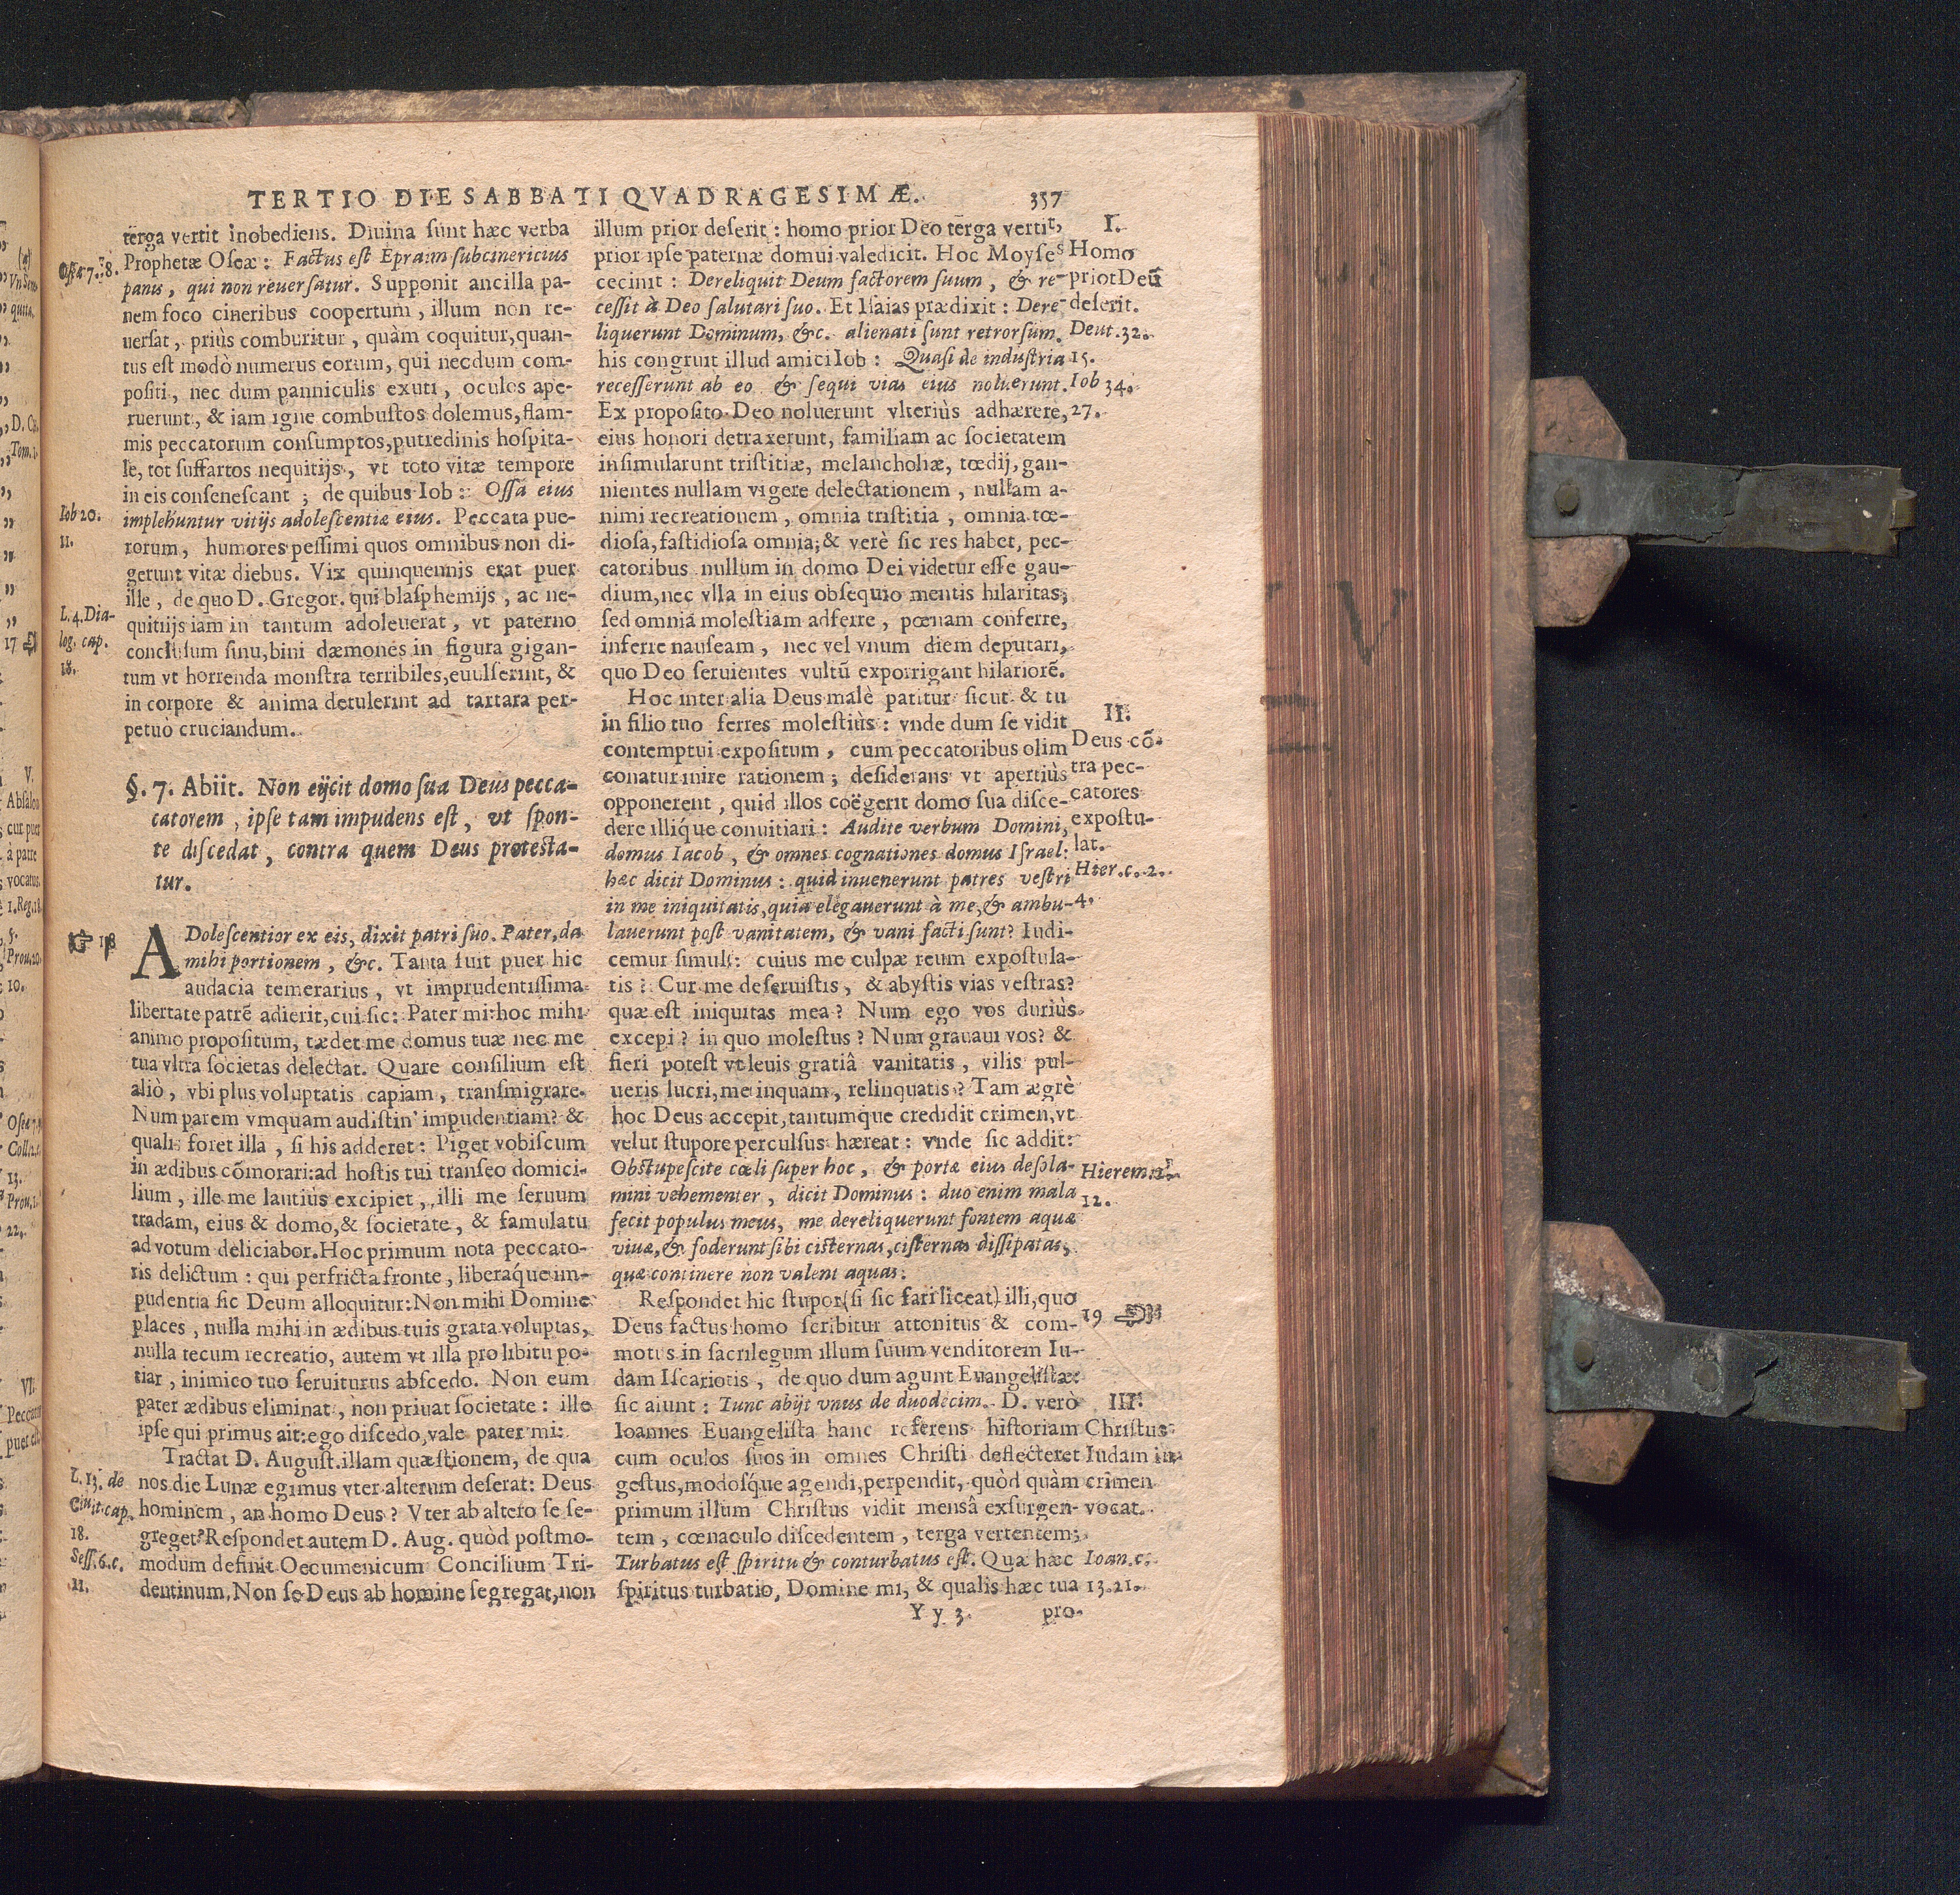 TERTIO DIE SABBATI QVADRAGESIMÆ. 357
terga vertit inobediens. Diuina ſunt hæc verba
Prophetæ Oſeæ: Factus eſt Epraim ſubcinericius
panis, qui non reuerſatur. Supponit ancilla pa-
nem foco cineribus coopertum, illum non re-
uerſat, priùs comburitur, quàm coquitur, quan-
tus eſt modò numerus eorum, qui necdum com-
poſiti, nec dum panniculis exuti, oculos ape-
ruerunt, & iam igne combuſtos dolemus, flam-
mis peccatorum conſumptos, putredinis hoſpita-
le, tot ſuffartos nequitijs, vt toto vitæ tempore
in eis conſeneſcant; de quibus Iob: Oſſa eius
implebuntur vitijs adoleſcentiæ eius. Peccata pue-
rorum, humores peſſimi quos omnibus non di-
gerunt vitæ diebus. Vix quinquennis erat puer
ille, de quo D. Gregor. qui blaſphemijs, ac ne-
quitiijs iam in tantum adoleuerat, vt paterno
concluſum ſinu, bini dæmones in figura gigan-
tum vt horrenda monſtra terribiles, euulſerint, &
in corpore & anima detulerint ad tartara per-
petuò cruciandum.
Iob 20.
11.
L. 4. Dia-
log. cap.
18.
§. 7. Abiit. Non eijcit domo ſua Deus pecca-
catorem, ipſe tam impudens eſt, vt ſpon-
te diſcedat, contra quem Deus proteſta-
tur.
☞ 18
ADoleſcentior ex eis, dixit patri ſuo. Pater, da
mihi portionem, &c. Tanta fuit puer hic
audacia temerarius, vt imprudentiſſima
libertate patrē adierit, cui ſic: Pater mi: hoc mihi
animo propoſitum, tædet me domus tuæ nec me
tua vltra ſocietas delectat. Quare conſilium eſt
aliò, vbi plus voluptatis capiam, tranſmigrare.
Num parem vmquam audiſtin' impudentiam? &
qualis foret illa, ſi his adderet: Piget vobiſcum
in ædibus cōmorari: ad hoſtis tui tranſeo domici-
lium, ille me lautiùs excipiet, illi me ſeruum
tradam, eius & domo, & ſocietate, & famulatu
ad votum deliciabor. Hoc primum nota peccato-
ris delictum: qui perfricta fronte, liberáque im-
pudentia ſic Deum alloquitur: Non mihi Domine
places, nulla mihi in ædibus tuis grata voluptas,
nulla tecum recreatio, autem vt illa pro libitu po-
tiar, inimico tuo ſeruiturus abſcedo. Non eum
pater ædibus eliminat, non priuat ſocietate: ille
ipſe qui primus ait: ego diſcedo, vale pater mi:
Tractat D. Auguſt. illam quæſtionem, de qua
nos die Lunæ egimus vter alterum deſerat: Deus
hominem, an homo Deus? Vter ab altero ſe ſe-
greget? Reſpondet autem D. Aug. quòd poſtmo-
modum definit Oecumenicum Concilium Tri-
dentinum. Non ſe Deus ab homine ſegregat, non
L. 13. de
Ciuit. cap.
18.
Seſſ. 6. c.
11.
illum prior deſerit: homo prior Deo terga vertit,
prior ipſe paternæ domui valedicit. Hoc Moyſes
cecinit: Dereliquit Deum factorem ſuum, & re-
ceſſit à Deo ſalutari ſuo. Et Iſaias prædixit: Dere-
liquerunt Dominum, &c. alienati ſunt retrorſùm.
his congruit illud amici Iob: Quaſi de induſtria
receſſerunt ab eo & ſequi vias eius noluerunt.
Ex propoſito Deo noluerunt vlteriùs adhærere,
eius honori detraxerunt, familiam ac ſocietatem
inſimularunt triſtitiæ, melancholiæ, tœdij, gan-
nientes nullam vigere delectationem, nullam a-
nimi recreationem, omnia triſtitia, omnia tœ-
dioſa, faſtidioſa omnia; & verè ſic res habet, pec-
catoribus nullum in domo Dei videtur eſſe gau-
dium, nec vlla in eius obſequio mentis hilaritas;
ſed omniá moleſtiam adferre, pœnam conferre,
inferre nauſeam, nec vel vnum diem deputari,
quo Deo ſeruientes vultū exporrigant hilariorē.
Hoc inter alia Deus malè patitur ſicut & tu
in filio tuo ferres moleſtiùs: vnde dum ſe vidit
contemptui expoſitum, cum peccatoribus olim
conatur mire rationem; deſiderans vt apertiùs
opponerent, quid illos coëgerit domo ſua diſce-
dere illíque conuitiari: Audite verbum Domini,
domus Iacob, & omnes cognationes domus Iſrael:
hæc dicit Dominus: quid inuenerunt patres veſtri
in me iniquitatis, quia elegauerunt à me, & ambu-
lauerunt poſt vanitatem, & vani facti ſunt? Iudi-
cemur ſimul: cuius me culpæ reum expoſtula-
tis? Cur me deſeruiſtis, & abyſtis vias veſtras?
quæ eſt iniquitas mea? Num ego vos duriùs
excepi? in quo moleſtus? Num grauaui vos? &
fieri poteſt vt leuis gratiâ vanitatis, vilis pul-
ueris lucri, me inquam, relinquatis? Tam ægrè
hoc Deus accepit, tantumque credidit crimen, vt
velut ſtupore perculſus hæreat: vnde ſic addit:
Obſtupeſcite cœli ſuper hoc, & portæ eius deſola-
mini vehementer, dicit Dominus: duo enim mala
fecit populus meus, me dereliquerunt fontem aquæ
viuæ, & foderunt ſibi ciſternas, ciſternas diſſipatas,
quæ continere non valent aquas.
Reſpondet hic ſtupor (ſi ſic fari liceat) illi, quo
Deus factus homo ſcribitur attonitus & com-
motus in ſacrilegum illum ſuum venditorem Iu-
dam Iſcariotis, de quo dum agunt Euangeliſtæ:
ſic aiunt: Tunc abijt vnus de duodecim. D. verò
Ioannes Euangeliſta hanc referens hiſtoriam
cum oculos ſuos in omnes Chriſti deflecteret
geſtus, modoſque agendi, perpendit, quòd quàm
primum illum Chriſtus vidit menſâ exſurgen-
tem, cœnaculo diſcedentem, terga vertentem;
Turbatus eſt ſpiritu & conturbatus eſt. Quæ hæc
ſpiritus turbatio, Domine mi, & qualis hæc tua
I.
Homo
prior Deū
deſerit.
Deut. 32.
15.
Iob 34.
27.
II.
Deus cō-
tra pec-
catores
expoſtu-
lat.
Hier. c. 2.
4.
Hierem.
12.
19
III.
Chriſtus
Iudam in
crimen
vocat.
Ioan. c.
13. 21.
Y y 3 pro-